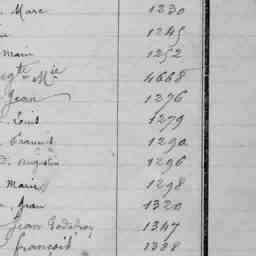 Marc 1230
1245
1252
Mie 4668
Jean 1276
Emil 1279
1290
Augustin 1296
Marie 1298
Jean 1320
Jean Godefroy 1347
françois 1388